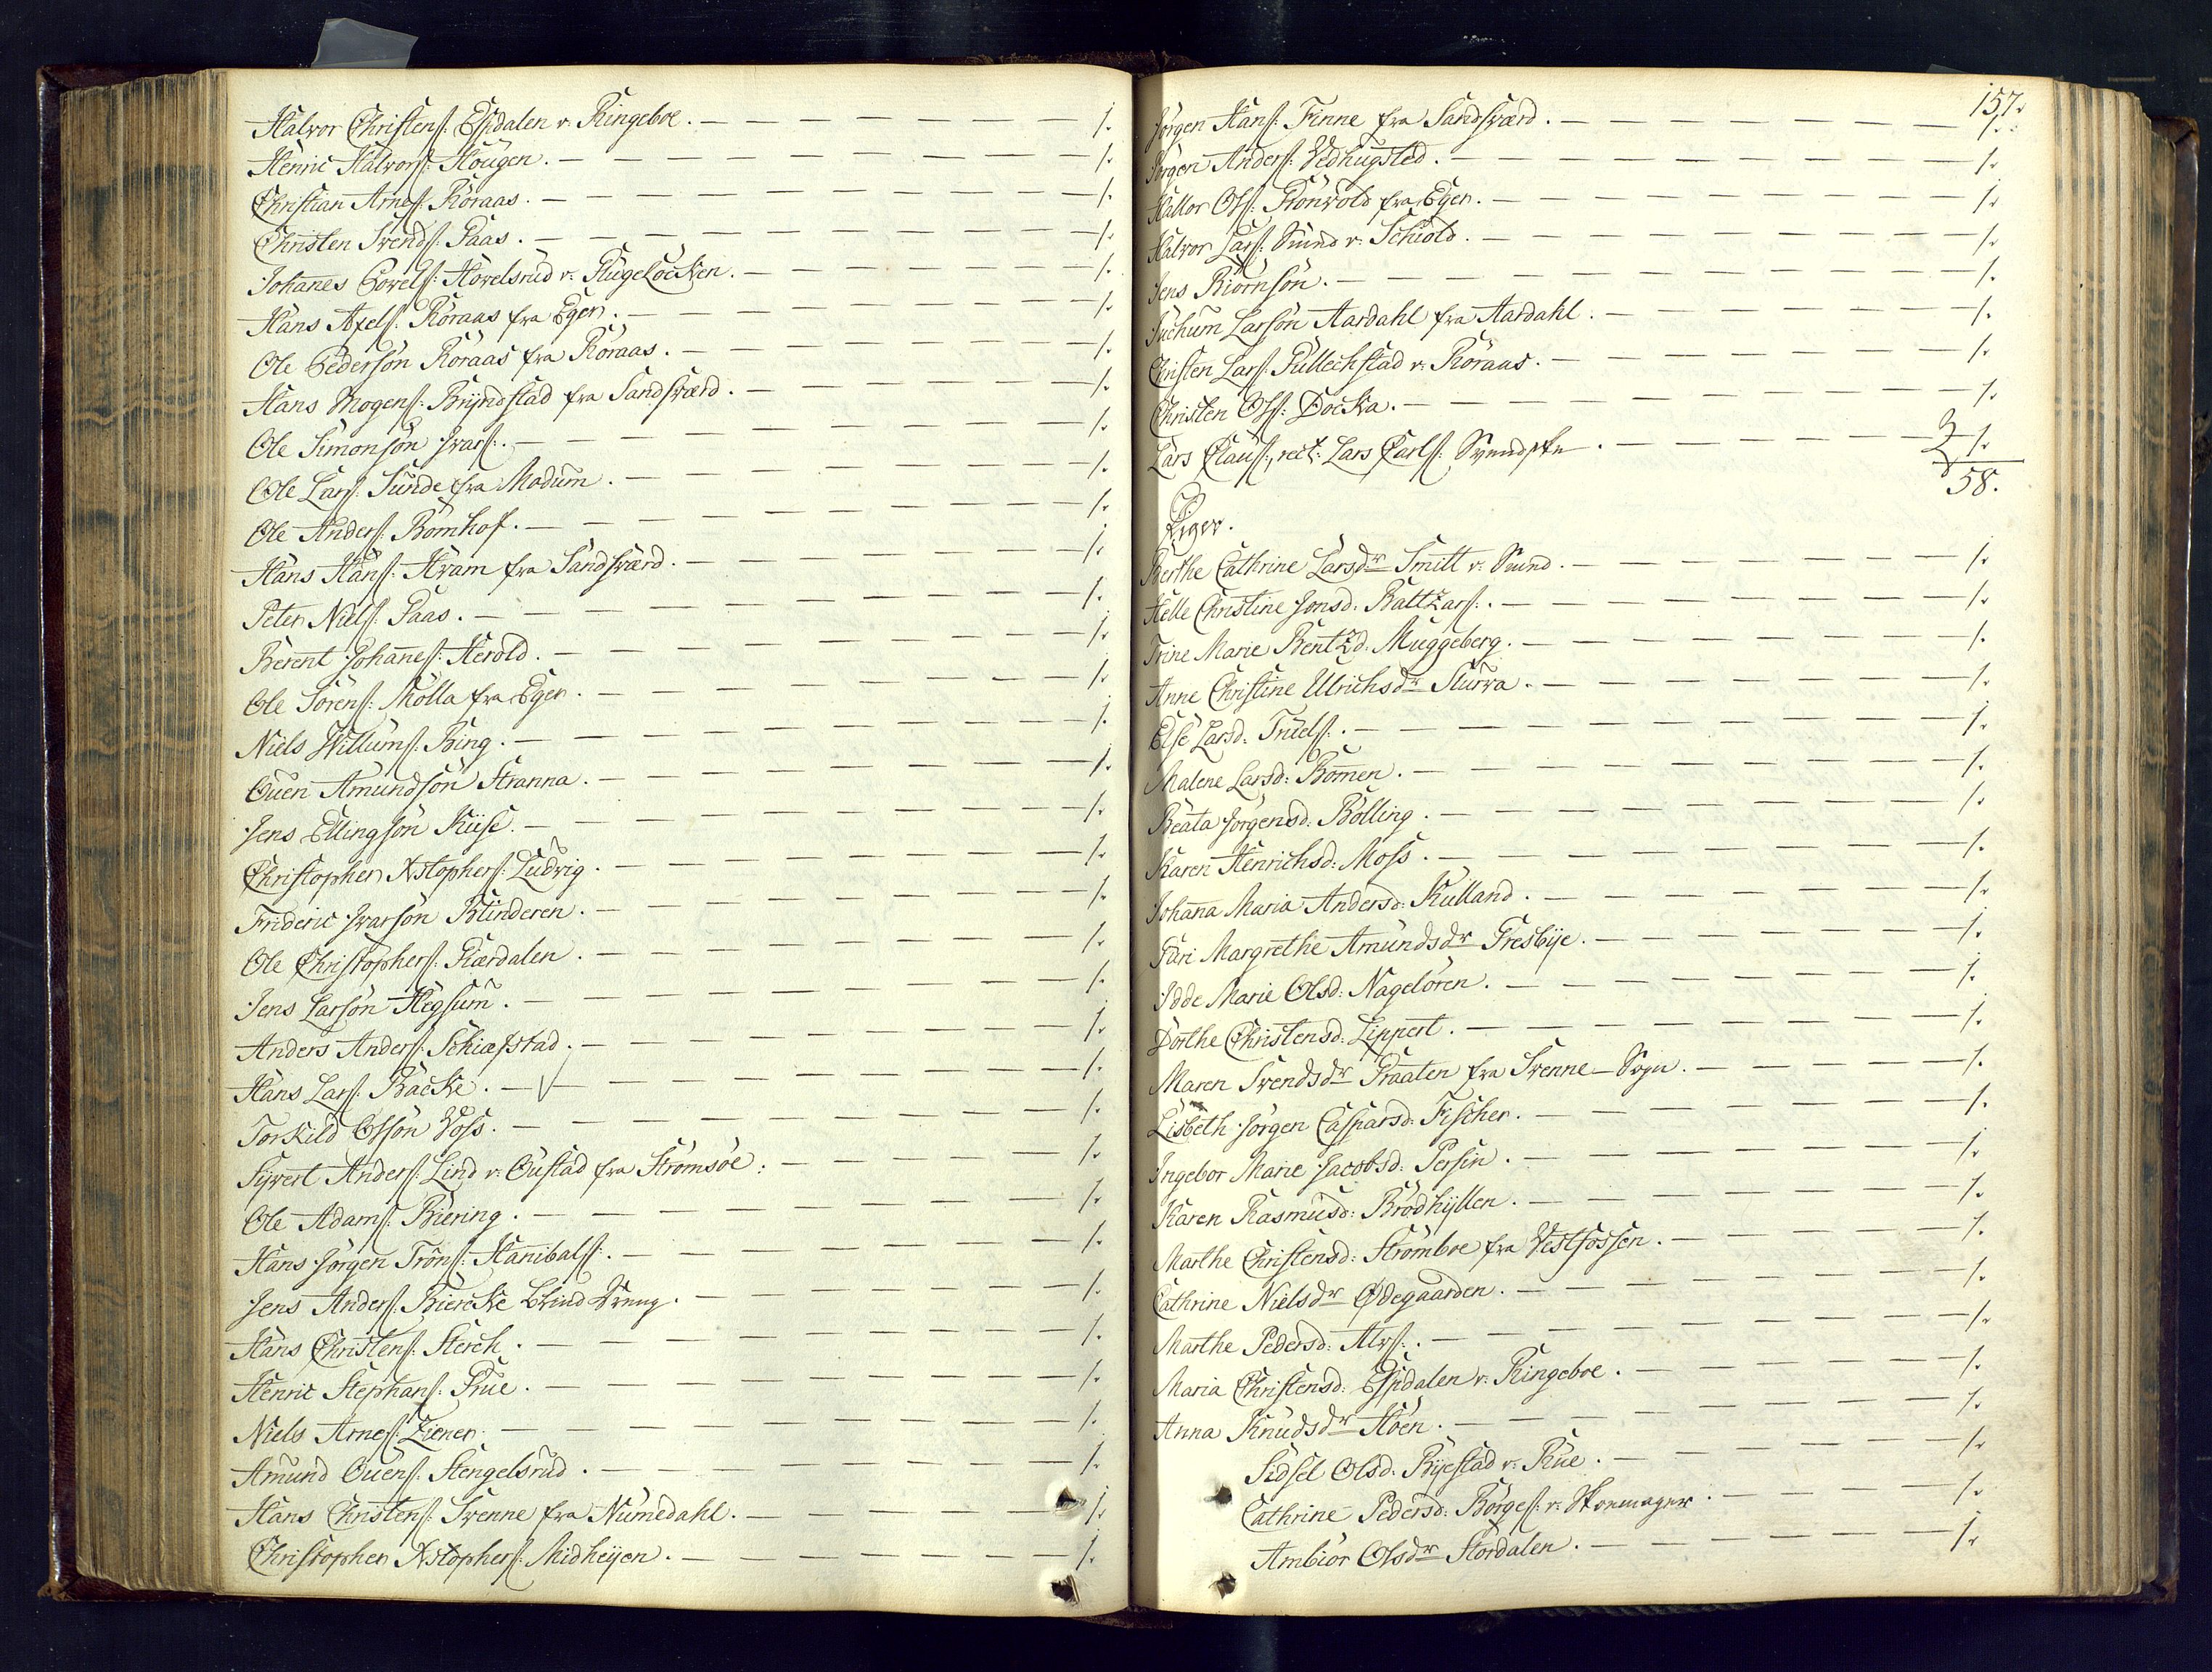 Halvor Christens: Espdalen v: Ringeboe. — 1.
Henric Halvors: Hougen. — 1.
Christian Arnes: Röraas. — 1.
Christen Svends: Paas. — 1.
Johanes Povels: Hovelsrud v: Flugelöcken. — 1.
Hans Axels: Röraas fra Eger. — 1.
Ole Pedersön Röraas fra Röraas. — 1.
Hans Mogens: Bryndstad fra Sandsværd. — 1.
Ole Simonsön Ivars:. — 1.
Ole Lars: Sunde fra Modum. — 1.
Ole Anders: Bömhof. — 1.
Hans Hans: Hvam fra Sandsværd. — 1.
Peter Niels: Paas. — 1.
Berent Johanes: Herold. — 1.
Ole Sörens: Mölla fra Eger. — 1.
Niels Willums: Bing. — 1.
Ouen Amundsön Stranna. — 1.
Jens Ellingsön Kiise. — 1.
Christopher Xstophers: Ludvig. — 1.
Frideric Ivarsön Blinderen. — 1.
Ole Christophers: Kiærdalen. — 1.
Jens Larsön Hegsum. — 1.
Anders Anders: Schiæfstad. — 1.
Hans Lars: Backe. — 1.
Torkild Olsön Voss. — 1.
Sywert Anders: Lind v: Oustad fra Strömsöe: — 1.
Ole Adams: Biering. — 1.
Hans Jörgen Tröns: Hanibals:. — 1.
Jens Anders: Biercke blind Dreng. — 1.
Hans Christens: Sterch. — 1.
Henric Stephans: Prue. — 1.
Niels Arnes: Ziener. — 1.
Amund Ouens: Stengelsrud. — 1.
Hans Christens: Svenne fra Numedahl. — 1.
Christopher Xstophers: Midheyen. — 1.
157.
Jörgen Hans: Finne fra Sandsværd. — 1.
Jörgen Anders: Vedhugsted. — 1.
Hallor Ols: Rönvold fra Eger. — 1.
Halvor Lars: Suund v: Schiold. — 1.
Jens Biörnsön. — 1.
Juchum Larsön Aardahl fra Aardahl. — 1.
Christen Lars: Pullechstad v: Röraas. — 1.
Christen Ols: Docka. — 1.
Lars Claus:, rect: Lars Carls: — 1.
58.
Piger.
Berthe Cathrine Larsdr Smitt v: Suund. — 1.
Helle Christine Jonsd: Baltzars:. — 1.
Trine Marie Bentzd: Muggeberg. — 1.
Anne Christine Ulrichsdr Skurra. — 1.
Else Larsd: Truels:. — 1.
Malene Larsd: Bömen. — 1.
Beata Jörgensd: Bölling. — 1.
Karen Henrichsd: Moss. — 1.
Johana Maria Andersd: Kulland. — 1.
Kari Margrethe Amundsdr Fresbye. — 1.
Idde Marie Olsd: Nagelören. — 1.
Dorthe Christensd: Lippert. — 1.
Maren Svendsdr Praaten fra Svenne-Sogn. — 1.
Lisbeth Jörgen Caspersd: Fischer. — 1.
Ingebor Marie Jacobsd: Persin. — 1.
Karen Rasmusd: Brödhyllen. — 1.
Marthe Christensd: Strömboe fra Vestfossen. — 1.
Cathrine Nielsdr Ødegaarden. — 1.
Marthe Pedersd: Alvs:. — 1.
Maria Christensd: Espdalen v: Ringeboe. — 1.
Anna Knudsdr Hoen. — 1.
Sidsel Olsd: Byestad v: Rue. — 1.
Cathrine Pedersd: Börges: v: Skoemager. — 1.
Ambiör Olsdr Stordalen. — 1.